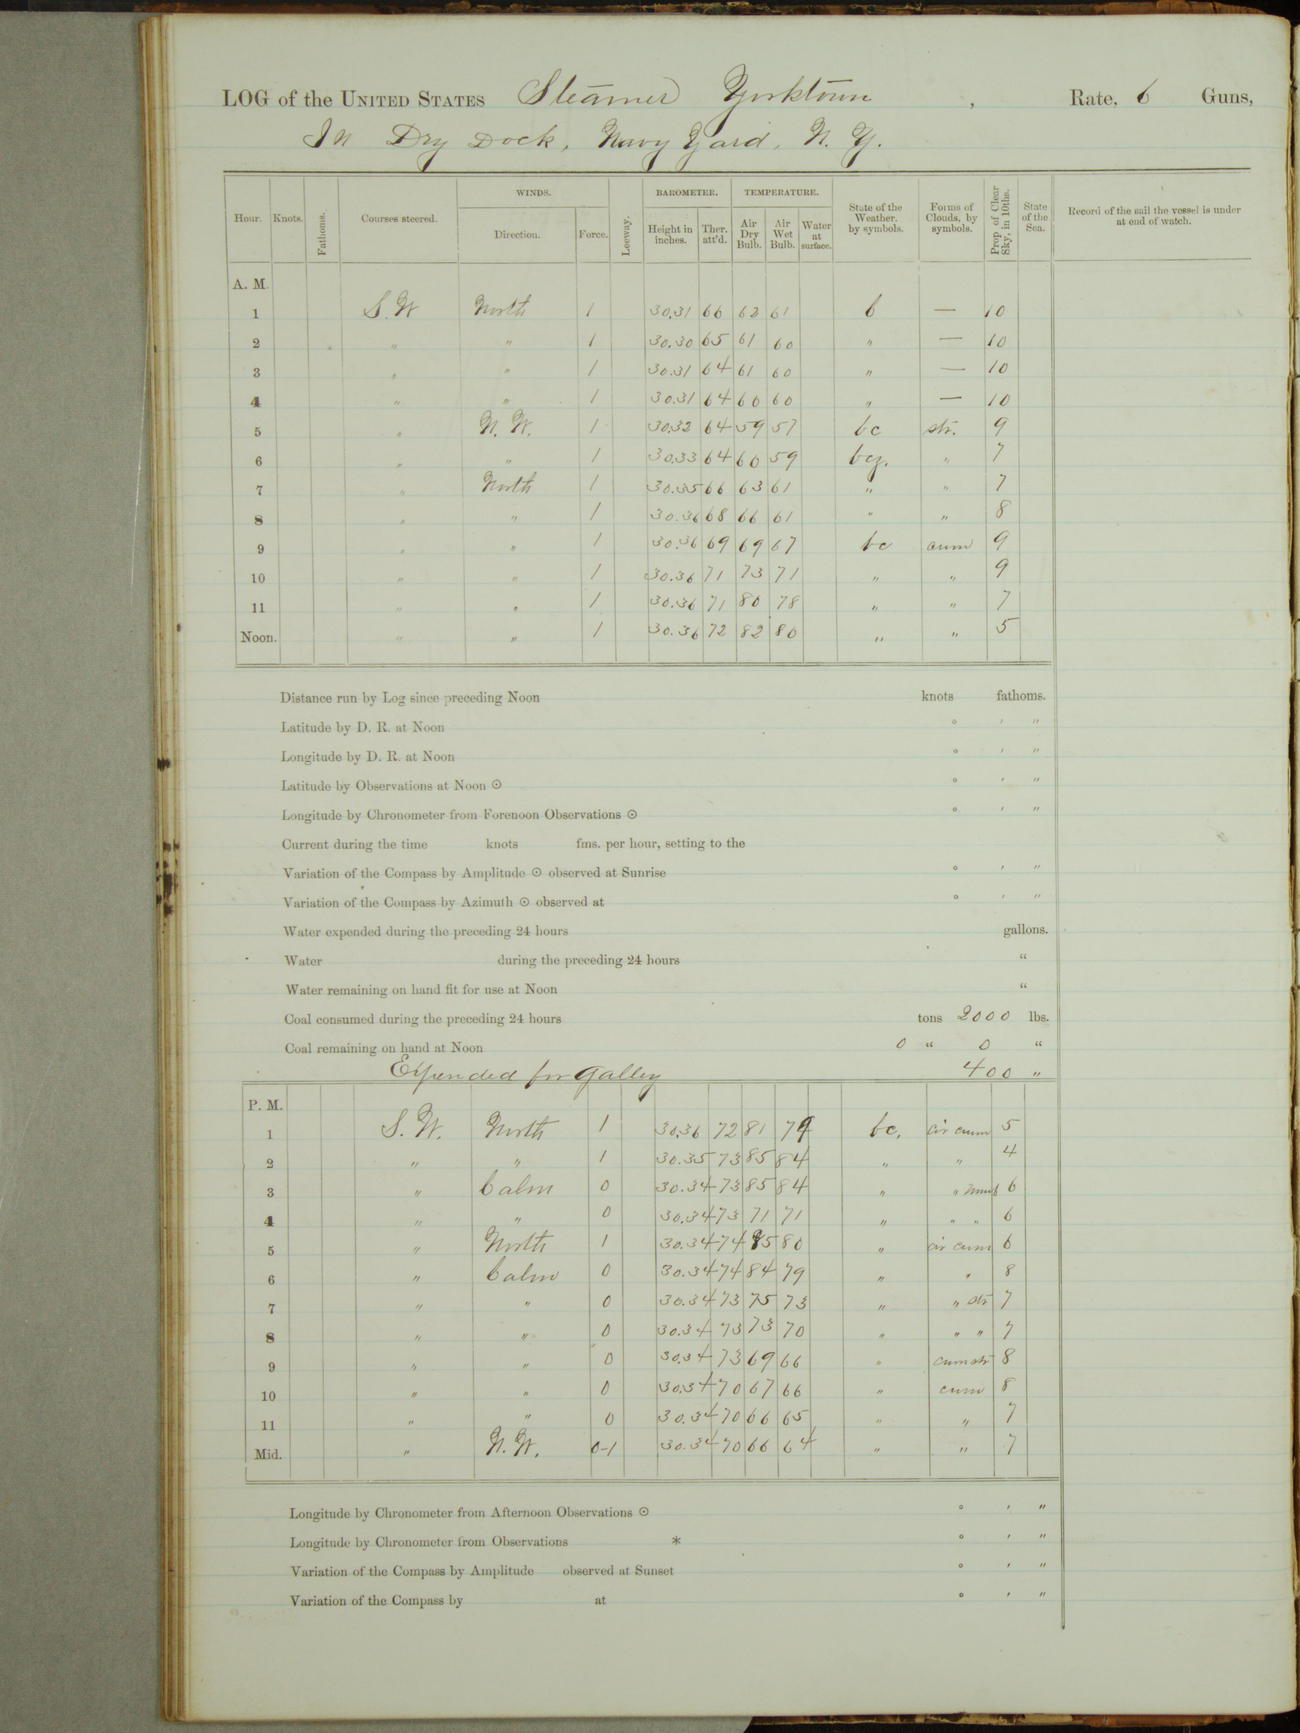 LOG of the UNITED STATES Steamer Yorktown, Rate, 6 Guns,
In Dry Dock, Navy Yard, N. Y.
Hour. Knots. Fathoms. Courses steered. WINDS. Direction. Force. Leeway. BAROMETER. Height in inches. Ther. att'd. TEMPERATURE. Air Dry Bulb. Air Wet Bulb. Water at surface. State of the Weather. by symbols. Forms of Clouds, by symbols. Prop of Clear Sky, in 10ths. State of the Sea. Record of the sail the vessel is under at end of watch.
A. M.
1 S. W North 1 30.31 66 62 61 b — 10
2 " " 1 30.30 65 61 60 " — 10
3 " " 1 30.31 64 61 60 " — 10
4 " " 1 30.31 64 60 60 " — 10
5 " N. W. 1 30.32 64 59 57 bc str. 9
6 " " 1 30.33 64 60 59 bcz. " 7
7 " North 1 30.35 66 63 61 " " 7
8 " " 1 30.36 68 66 61 " " 8
9 " " 1 30.36 69 69 67 bc cum 9
10 " " 1 30.36 71 73 71 " " 9
11 " " 1 30.36 71 80 78 " " 7
Noon. " " 1 30.36 72 82 80 " " 5
Distance run by Log since preceding Noon knots fathoms.
Latitude by D. R. at Noon ° ′ ″
Longitude by D. R. at Noon ° ′ ″
Latitude by Observations at Noon ☉ ° ′ ″
Longitude by Chronometer from Forenoon Observations ☉ ° ′ ″
Current during the time knots fms. per hour, setting to the
Variation of the Compass by Amplitude ☉ observed at Sunrise ° ′ ″
Variation of the Compass by Azimuth ☉ observed at ° ′ ″
Water expended during the preceding 24 hours gallons.
Water during the preceding 24 hours "
Water remaining on hand fit for use at Noon "
Coal consumed during the preceding 24 hours tons 2000 lbs.
Coal remaining on hand at Noon 0 " 0 "
Expended for galley 400 "
P. M.
1 S. W. North 1 30.36 72 81 79 bc. cir cum 5
2 " " 1 30.35 73 85 84 " " 4
3 " Calm 0 30.34 73 85 84 " " nimb 6
4 " " 0 30.34 73 71 71 " " " 6
5 " North 1 30.34 74 85 80 " cir cum 6
6 " Calm 0 30.34 74 84 79 " " 8
7 " " 0 30.34 73 75 73 " " str 7
8 " " 0 30.34 73 73 70 " " " 7
9 " " 0 30.34 73 69 66 " cum str 8
10 " " 0 30.34 70 67 66 " cum 8
11 " " 0 30.34 70 66 65 " " 7
Mid. " N. W. 0-1 30.34 70 66 64 " " 7
Longitude by Chronometer from Afternoon Observations ☉ ° ′ ″
Longitude by Chronometer from Observations * ° ′ ″
Variation of the Compass by Amplitude observed at Sunset ° ′ ″
Variation of the Compass by at ° ′ ″